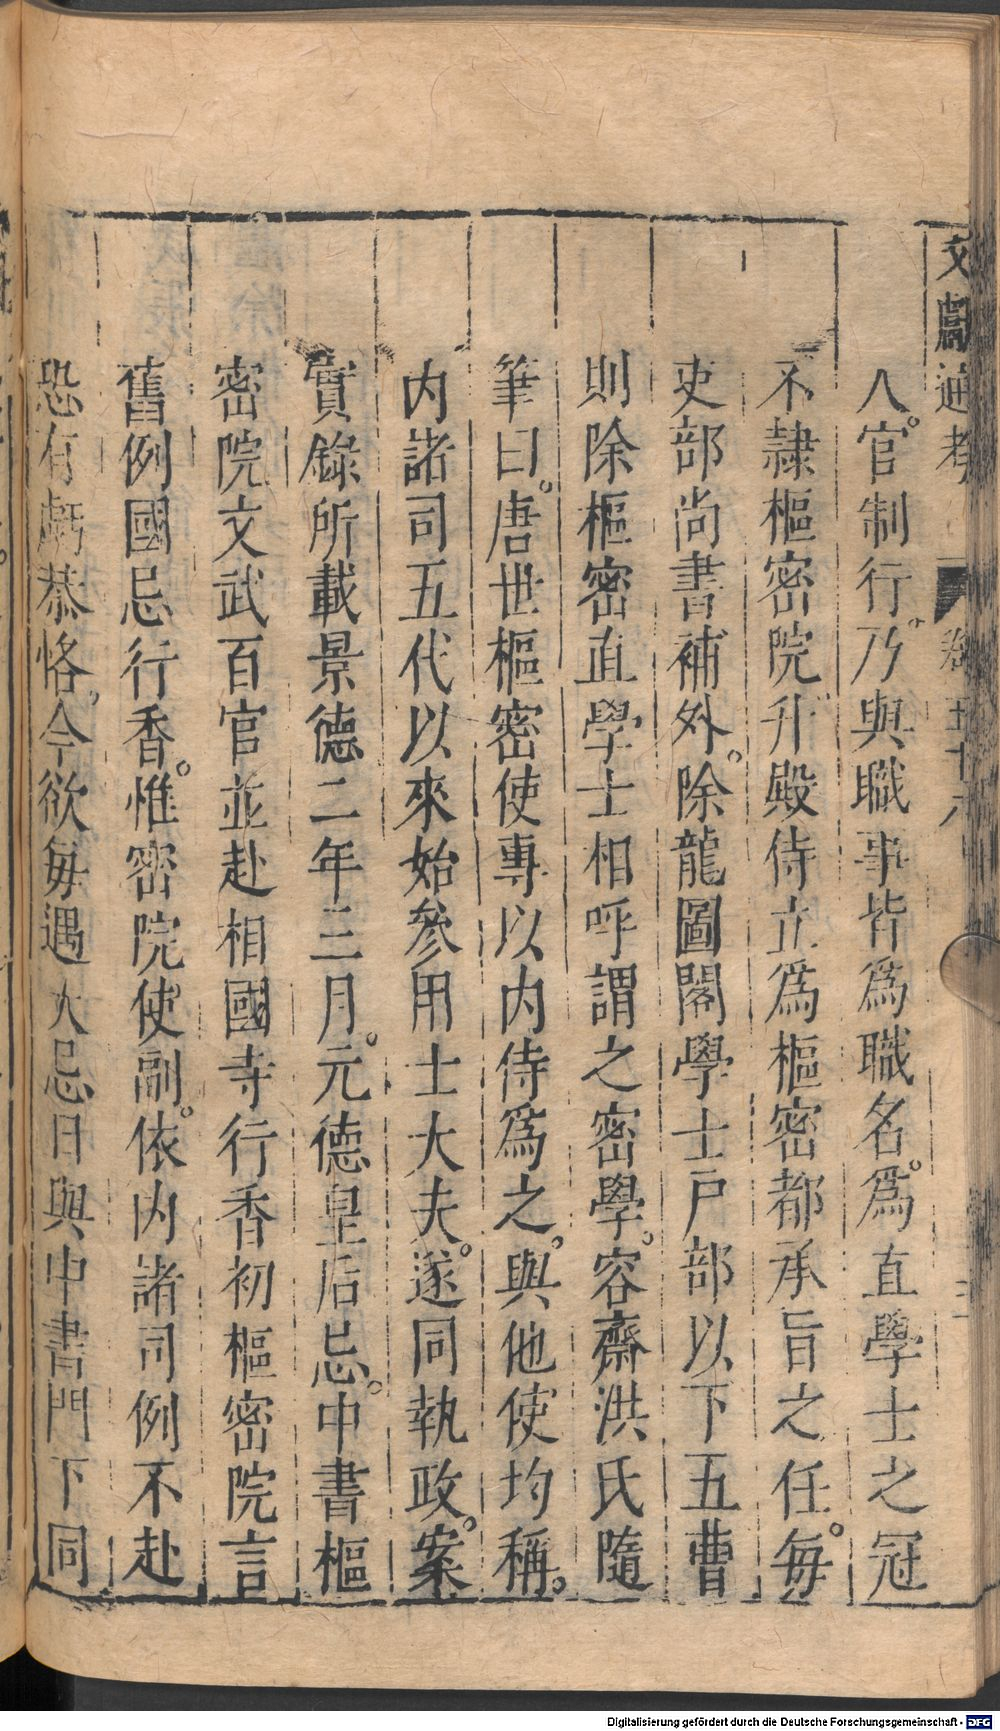 文獻通考 卷五十八 三
入。官制行。乃與職事皆爲職名。爲直學士之冠
不隸樞密院升殿侍立爲樞密都承旨之任。每
吏部尚書補外。除龍圖閣學士戶部以下五曹
則除樞密直學士相呼謂之密學。容齋洪氏隨
筆曰。唐世樞密使專以内侍爲之。與他使均稱。
内諸司五代以來始參用士大夫。遂同執政。案
實錄所載景德二年三月。元德皇后忌。中書樞
密院文武百官並赴相國寺行香初樞密院言
舊例國忌行香。惟密院使副。依内諸司例不赴
恐有虧恭恪。今欲每遇大忌日與中書門下同
Digitalisierung gefördert durch die Deutsche Forschungsgemeinschaft - DFG